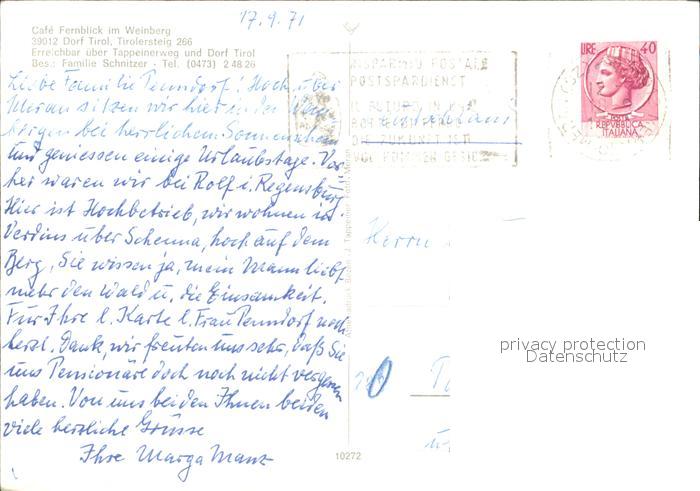 17.9.71
Café Fernblick im Weinberg
39012 Dorf Tirol, Tirolersteig 266
Erreichbar über Tappeinerweg und Dorf Tirol
Bes.: Familie Schnitzer - Tel. (0473) 2 48 26
Liebe Familie Penndorf! Hoch über
Meran sitzen wir hier in den Wein
bergen bei herrlichem Sonnenschein
und geniessen einige Urlaubstage. Vor
her waren wir bei Rolf i. Regensburg
Hier ist Hochbetrieb, wir wohnen in
Verdins über Schenna, hoch auf dem
Berg, Sie wissen ja, mein Mann liebt
mehr den Wald u. die Einsamkeit.
Für Ihre l. Karte l. Frau Penndorf noch
herzl. Dank, wir freuten uns sehr, daß Sie
uns Pensionäre doch noch nicht vergessen
haben. Von uns beiden Ihnen beiden
viele herzliche Grüsse
Ihre Marga Manz
RISPARMIO POSTALE
POSTSPARDIENST
IL FUTURO IN
DIE ZUKUNFT IST
LIRE 40
POSTE
REPVBBLICA
ITALIANA
Herrn
privacy protection
Datenschutz
10272